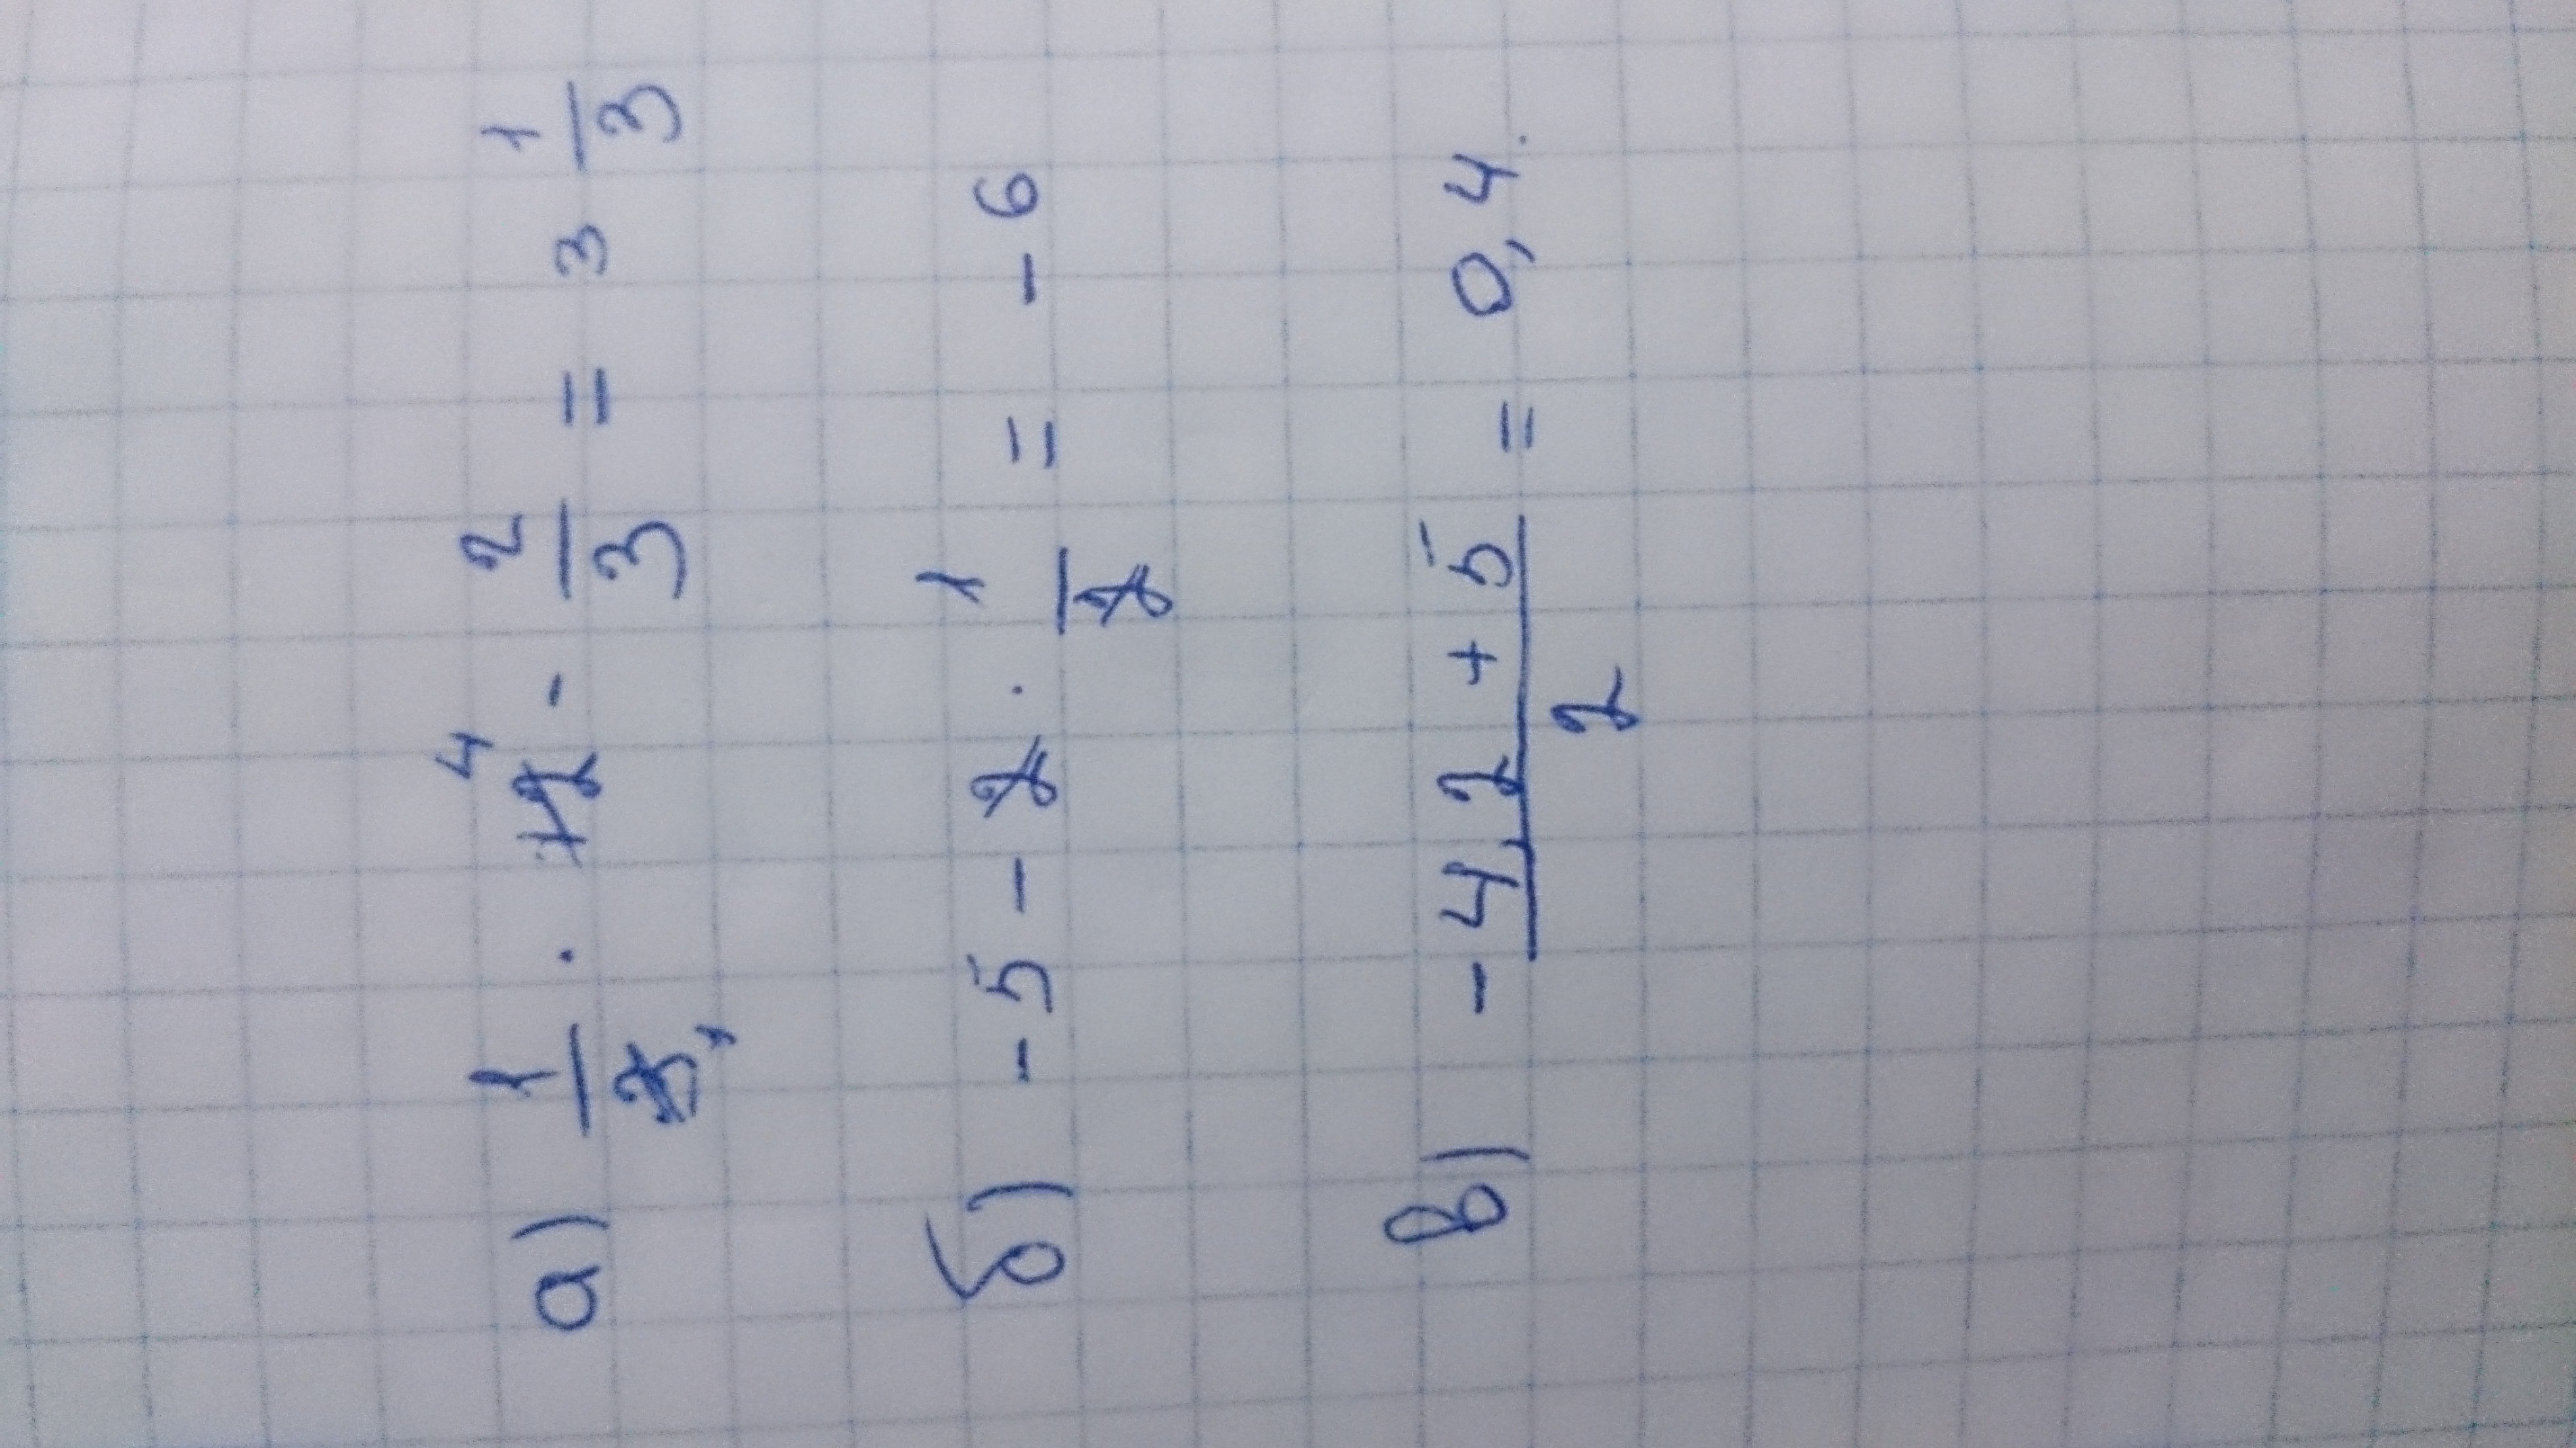 а) 1/3 · 12 - 2/3 = 3 1/3
б) -5 - 2 · 1/2 = -6
в) (-4,2 + 5)/2 = 0,4.